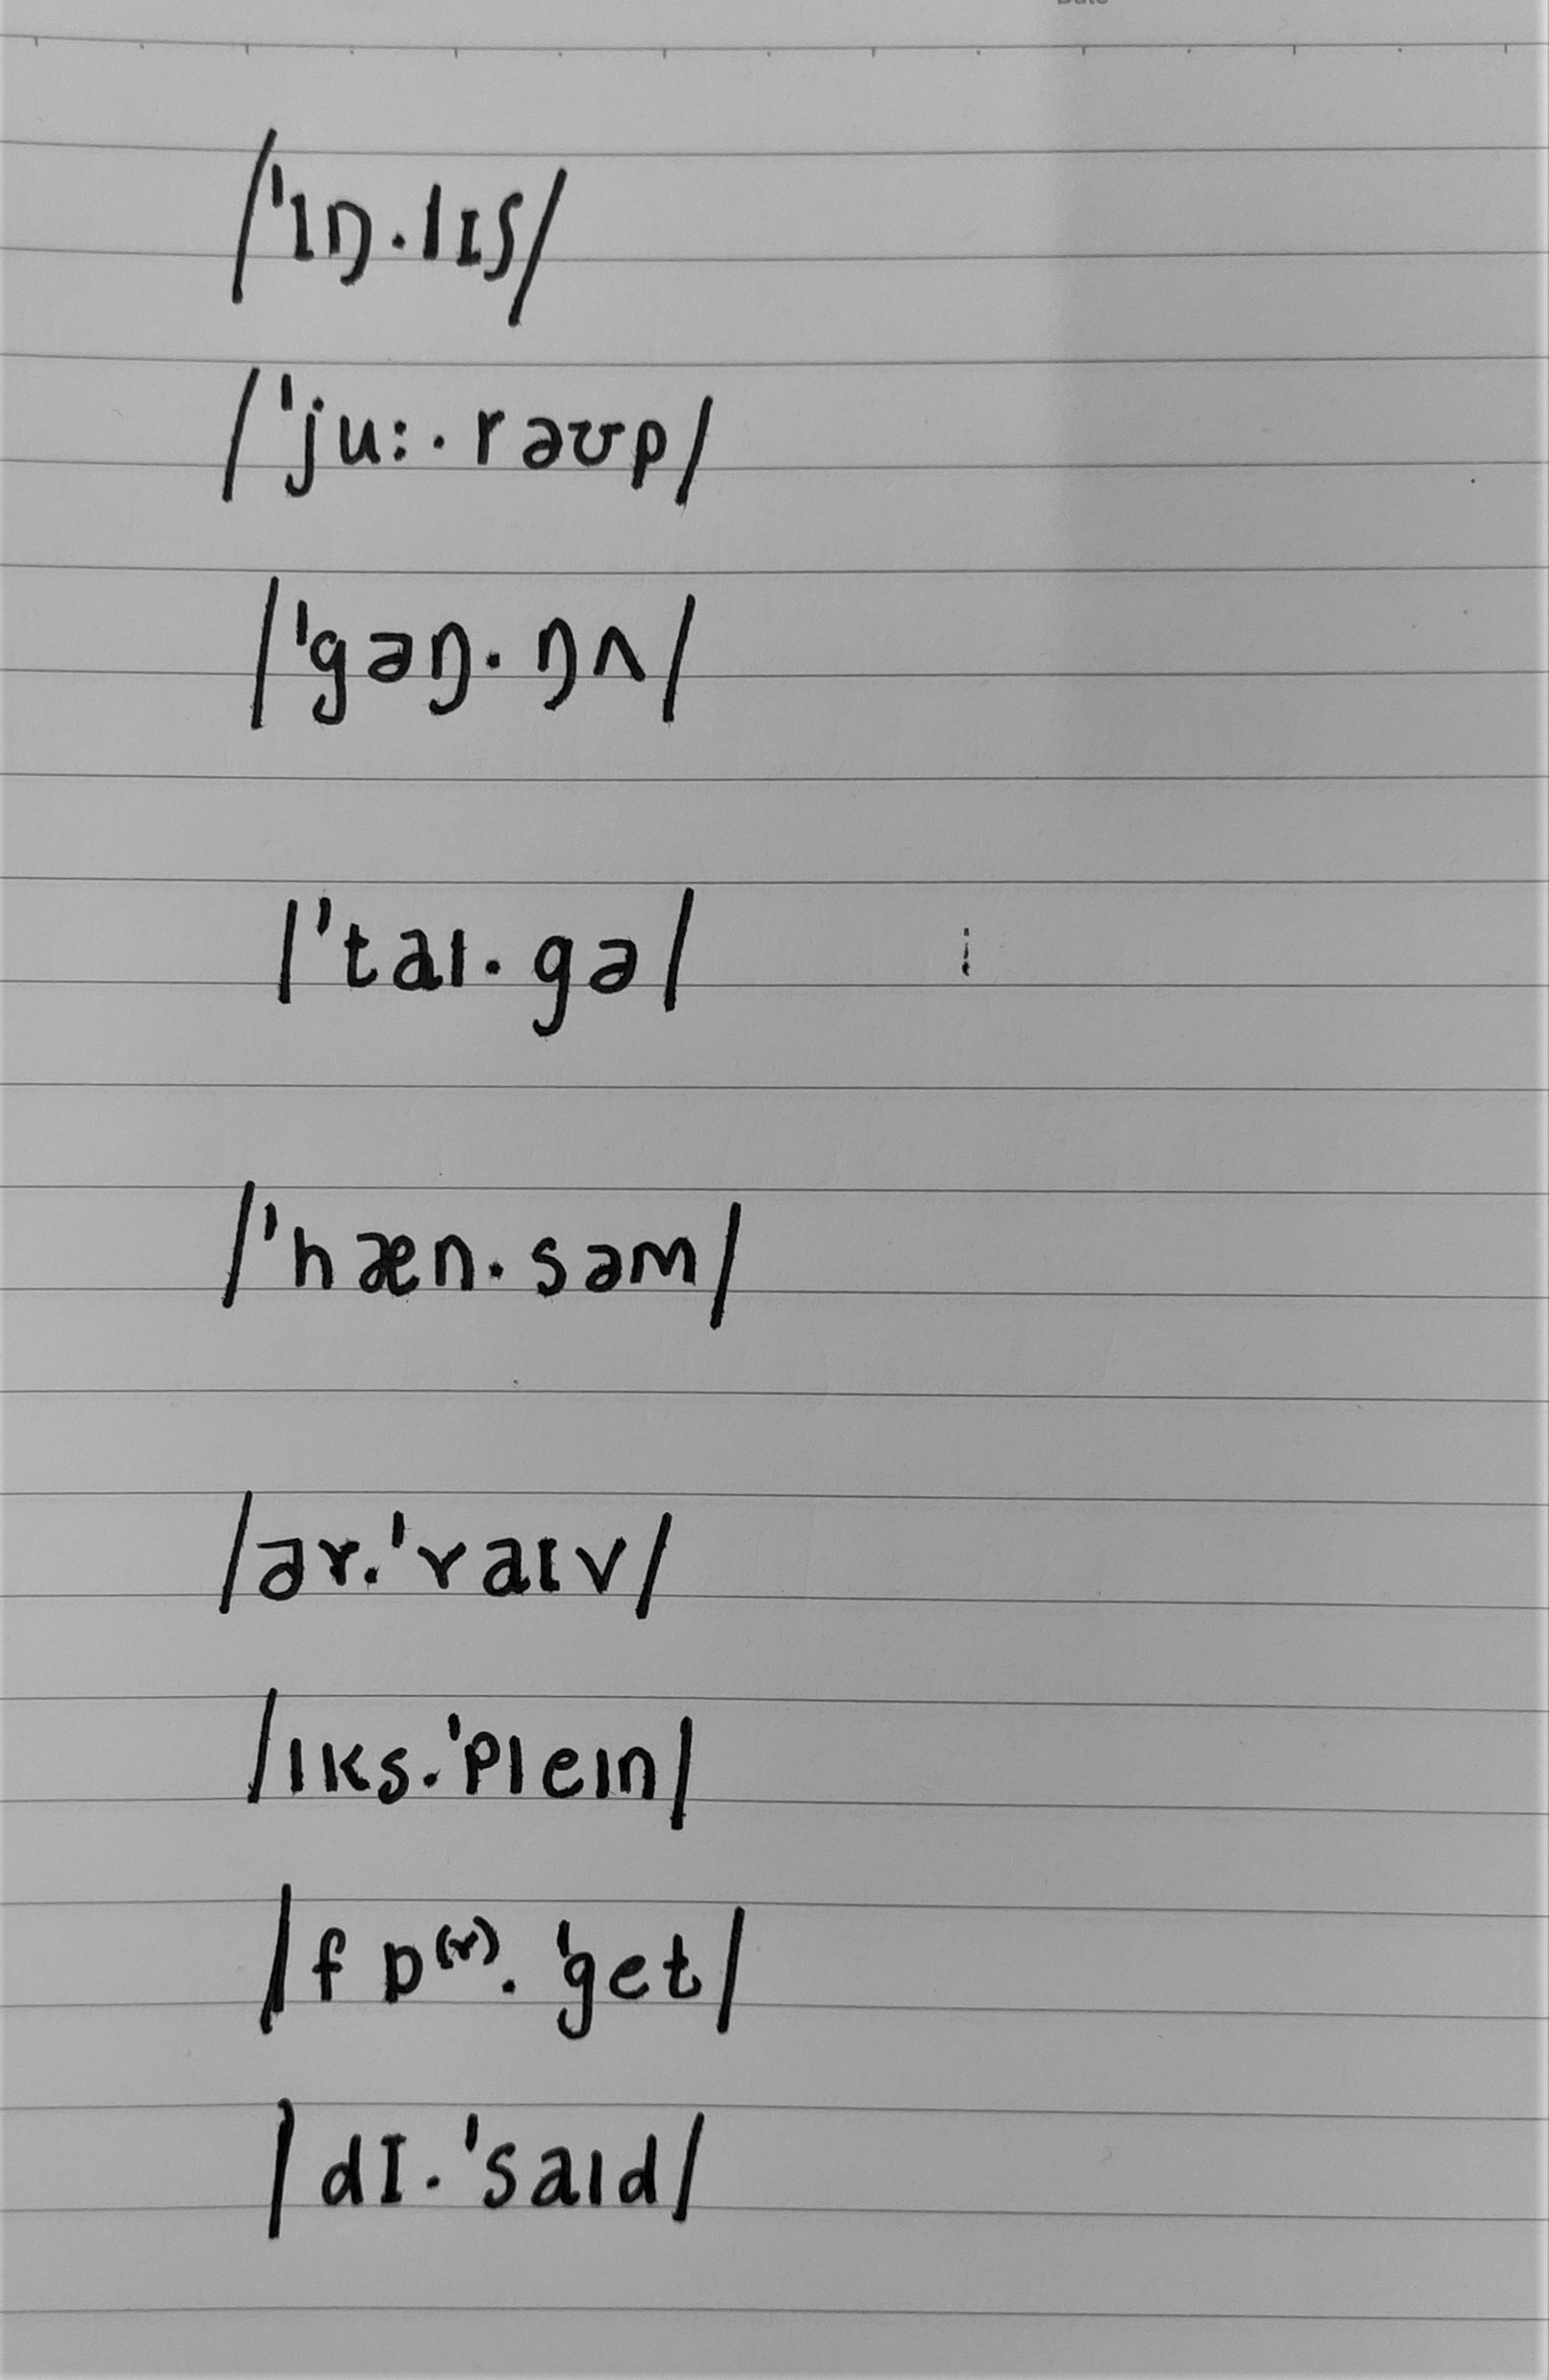 /ˈɪŋ.lɪʃ/
/ˈjuː.rəʊp/
/ˈgəŋ.ŋʌ/
/ˈtaɪ.gə/
/ˈhæn.səm/
/ər.ˈraɪv/
/ɪks.ˈpleɪn/
/fɒ⁽ʳ⁾.ˈget/
/dɪ.ˈsaɪd/